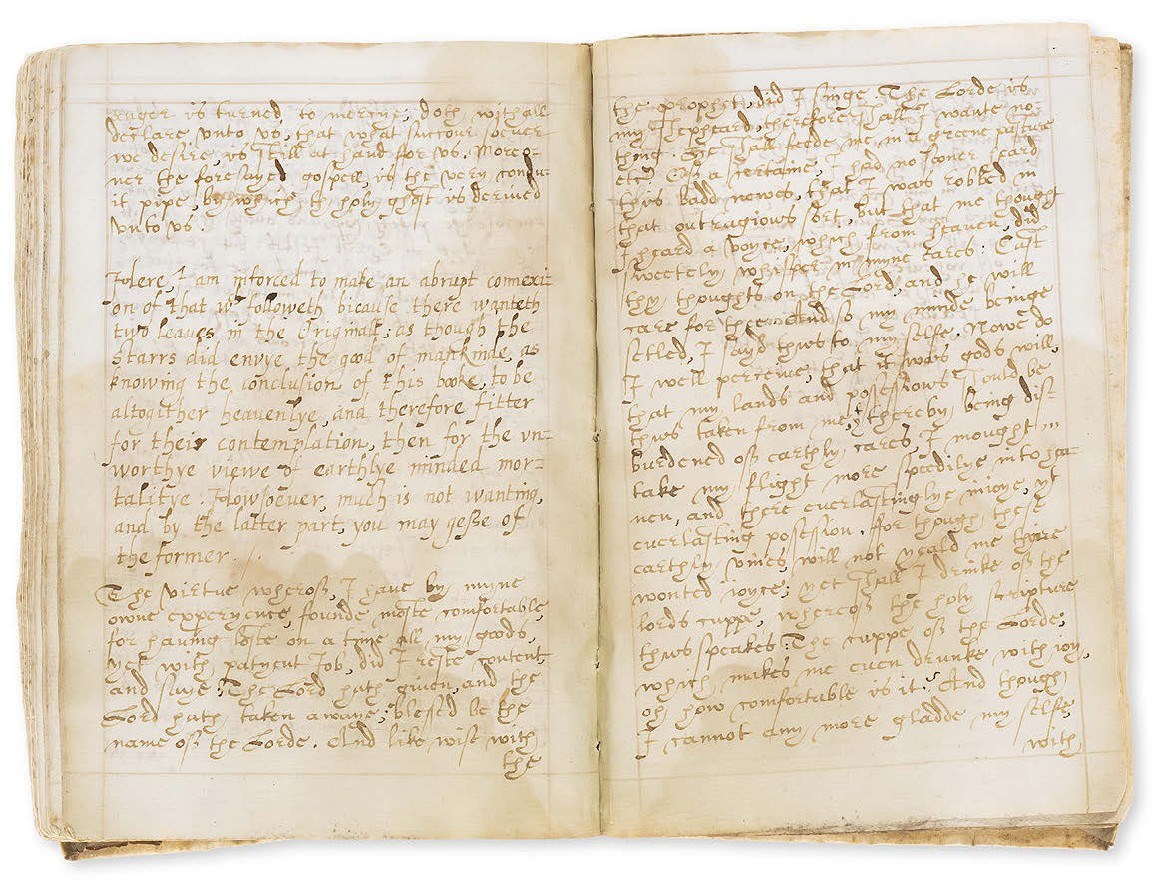 eager is turned to mercie, doth withall
declare vnto vs, that what succour soeuer
we desire, is still at hand for vs. Moreo-
uer the foresayed gospell, is the very condu-
it pipe, by which the holy ghost is deriued
vnto vs.
Heere I am inforced to make an abrupt connexi-
on of that wch followeth bicause there wanteth
two leaues in the Originall; as though the
Starrs did envye the good of mankinde, as
knowing the conclusion of this booke, to be
altogither heavenlye, and therefore fitter
for their contemplation, then for the vn-
worthye viewe of earthlye minded mor-
talitye. Howsoever, much is not wanting,
and by the latter part, you may gesse of
the former.
The virtue wherof, I have by myne
owne experyence, founde moste comfortable,
for having loste on a time all my goods,
yet with patyent Job, did I reste content,
and saye: The Lord hath given, and the
Lord hath taken awaye, blessed be the
name of the Lorde. And like wise with
the
the prophet, did I singe. The Lorde is
my shepheard, therefore shall I wante no-
thing. He shall feede me in a greene pasture
etc. Of a certaine, I had no sooner heard
this badd newes, that I was robbed in
that outragious sort, but that me thought
I heard a voyce, which from heaven, did
sweetely whisper in myne eares. Cast
thy thoughts on the Lord, and he will
care for thee. And so my minde beinge
setled, I sayd thus to my selfe. Nowe do
I well perceiue, that it was gods will,
that my lands and possessions should be
thus taken from me, yt thereby being dis-
burdened of earthly cares I mought
take my flight more speedilye into hea-
uen, and there euerlastinglye inioye, yt
euerlasting possession. For though these
earthly vines will not yeald me theire
wonted ioyce; yet shall I drinke of the
lords cuppe, whereof the holy scripture
thus speakes: The cuppe of the Lorde,
which makes me euen drunke with ioy,
oh how comfortable is it? And though
I cannot any more gladde my selfe,
with